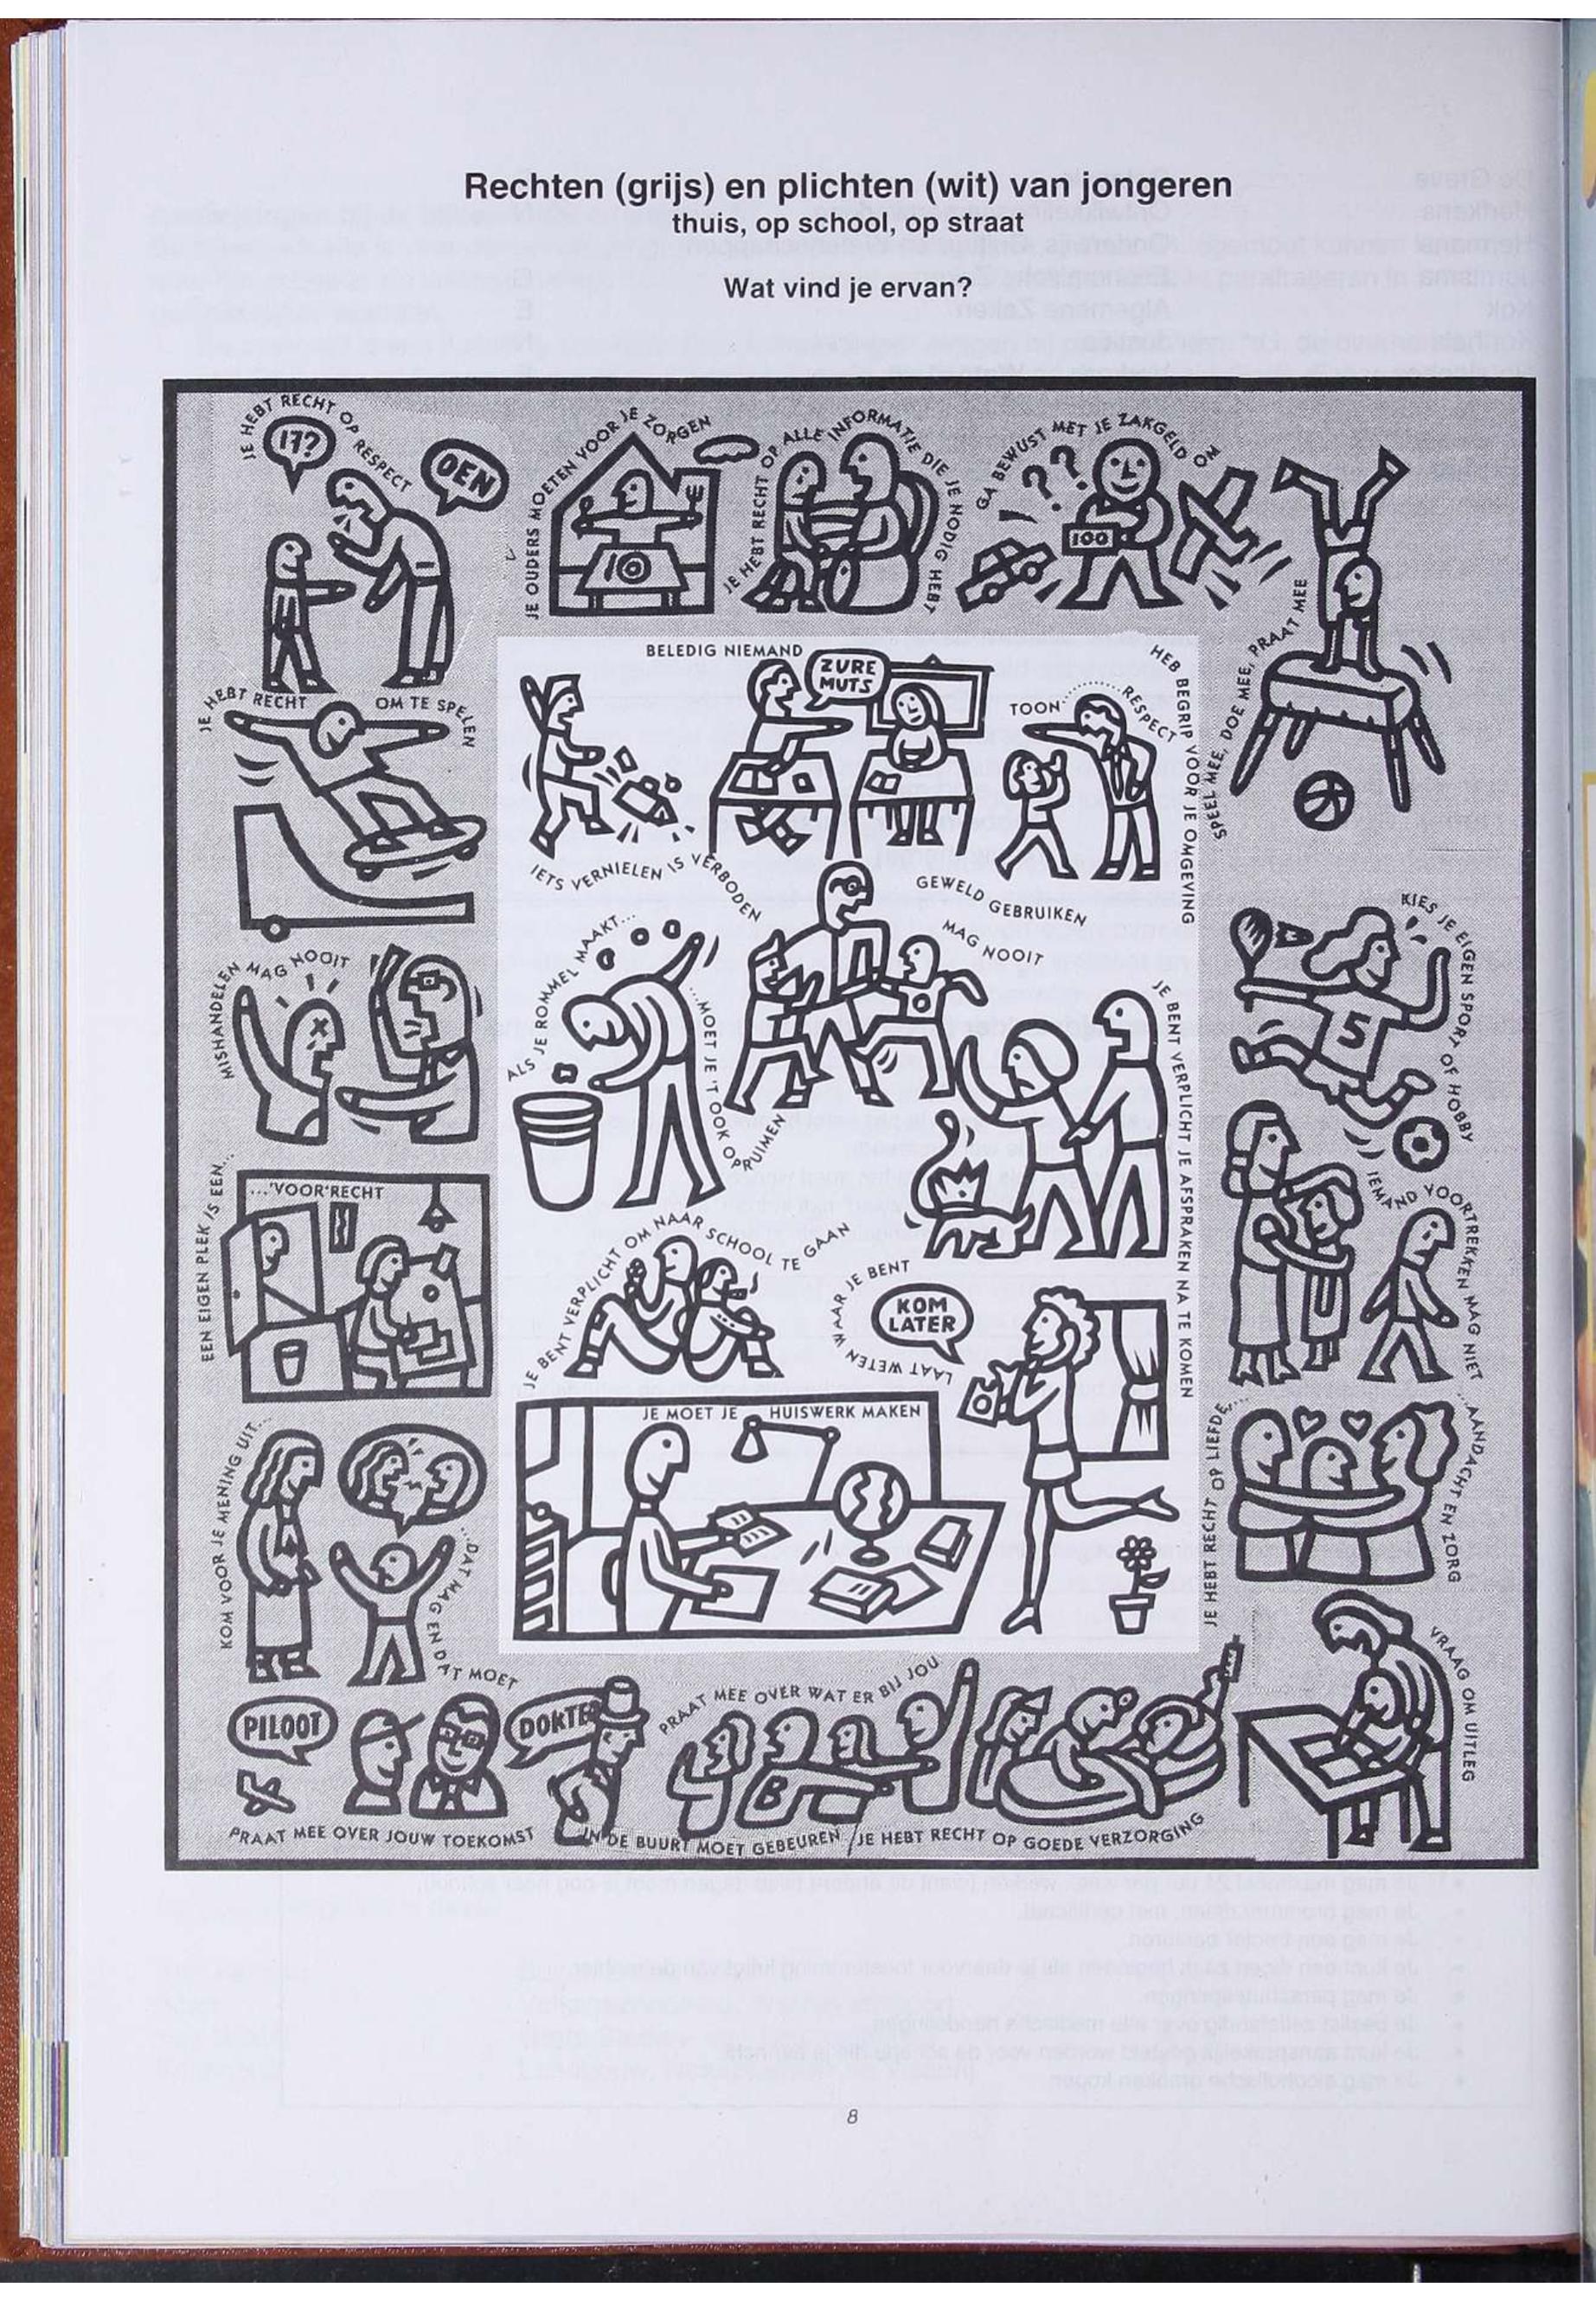 Rechten (grijs) en plichten (wit) van jongeren
thuis, op school, op straat
Wat vind je ervan?
JE HEBT RECHT OP RESPECT
17?
OEN
JE OUDERS MOETEN VOOR JE ZORGEN
10
JE HEBT RECHT OP ALLE INFORMATIE DIE JE NODIG HEBT
GA BEWUST MET JE ZAKGELD OM
??
100
SPEEL MEE, DOE MEE, PRAAT MEE
JE HEBT RECHT OM TE SPELEN
BELEDIG NIEMAND
ZURE
MUTS
TOON........RESPECT
HEB BEGRIP VOOR JE OMGEVING
IETS VERNIELEN IS VERBODEN
GEWELD GEBRUIKEN
MAG NOOIT
KIES JE EIGEN SPORT OF HOBBY
5
MISHANDELEN MAG NOOIT
ALS JE ROMMEL MAAKT...
...MOET JE 'T OOK OPRUIMEN
JE BENT VERPLICHT JE AFSPRAKEN NA TE KOMEN
IEMAND VOORTREKKEN MAG NIET
EEN EIGEN PLEK IS EEN...
...'VOOR'RECHT
JE BENT VERPLICHT OM NAAR SCHOOL TE GAAN
LAAT WETEN WAAR JE BENT
KOM
LATER
JE MOET JE HUISWERK MAKEN
JE HEBT RECHT OP LIEFDE,...
...AANDACHT EN ZORG
KOM VOOR JE MENING UIT...
...DAT MAG EN DAT MOET
PILOOT
DOKTE
PRAAT MEE OVER JOUW TOEKOMST
PRAAT MEE OVER WAT ER BIJ JOU
IN DE BUURT MOET GEBEUREN
JE HEBT RECHT OP GOEDE VERZORGING
VRAAG OM UITLEG
8